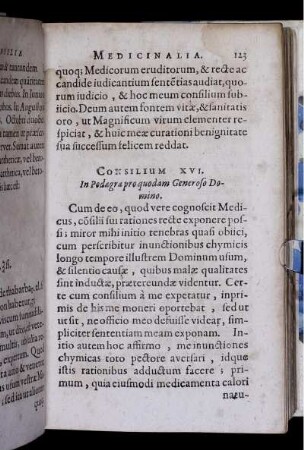 MEDICINALIA. 123
quoq; Medicorum eruditorum, & recte ac
candide iudicantium sentētias audiat, quo-
rum iudicio, & hoc meum consilium sub-
iicio. Deum autem fontem vitæ, & sanitatis
oro, ut Magnificum virum clementer re-
spiciat, & huic meæ curationi benignitate
sua successum felicem reddat.
CONSILIUM XVI.
In Podagra pro quodam Generoso Do-
mino.
Cum de eo, quod vere cognoscit Medi-
cus, cōsilii sui rationes recte exponere pos-
si: miror mihi initio tenebras quasi obiici,
cum perscribitur inunctionibus chymicis
longo tempore illustrem Dominum usum,
& silentio causæ, quibus malæ qualitates
sint inductæ, prætereundæ videntur. Certe
cum consilium à me expetatur, inpri-
mis de his me moneri oportebat, sed ut
ut sit, ne officio meo defuisse videar, sim-
pliciter sententiam meam exponam. Ini-
tio autem hoc affirmo, me inunctiones
chymicas toto pectore aversari, idque
istis rationibus adductum facere; pri-
mum, quia eiusmodi medicamenta calori
natu-